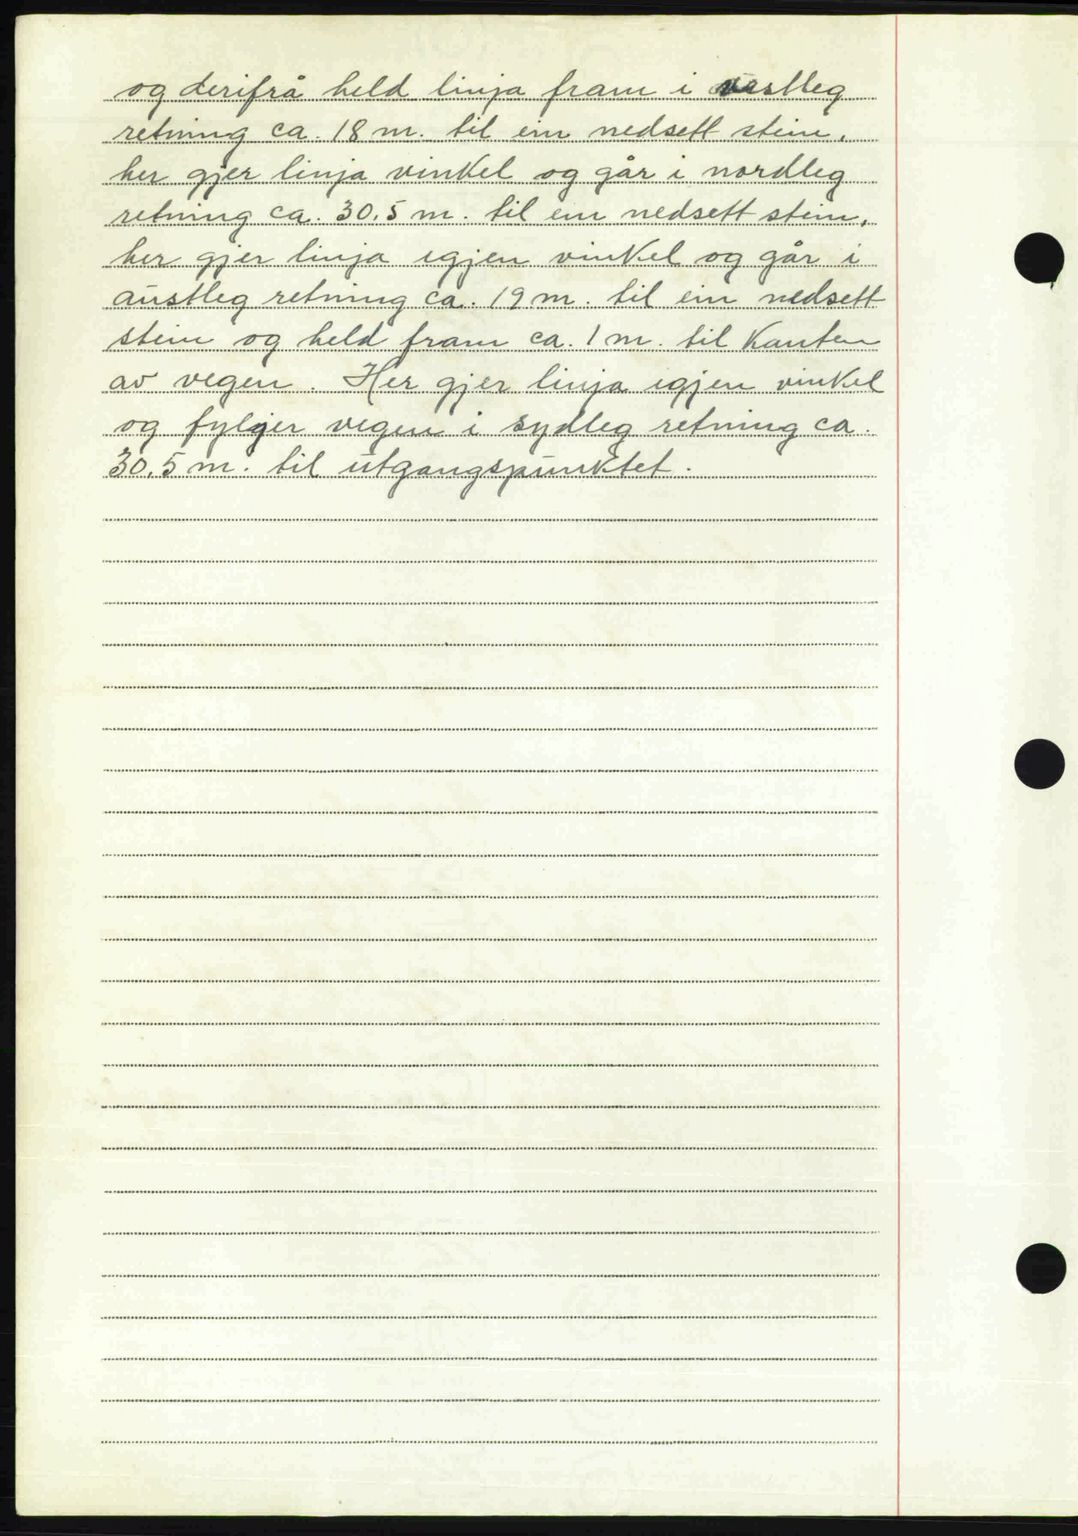 og derifrå held linja fram i vestleg
retning ca. 18 m. til ein nedsett stein,
her gjer linja vinkel og går i nordleg
retning ca. 30,5 m. til ein nedsett stein,
her gjer linja igjen vinkel og går i
austleg retning ca. 19 m. til ein nedsett
stein og held fram ca. 1 m. til kanten
av vegen. Her gjer linja igjen vinkel
og fylgjer vegen i sydleg retning ca.
30,5 m. til utgangspunktet.